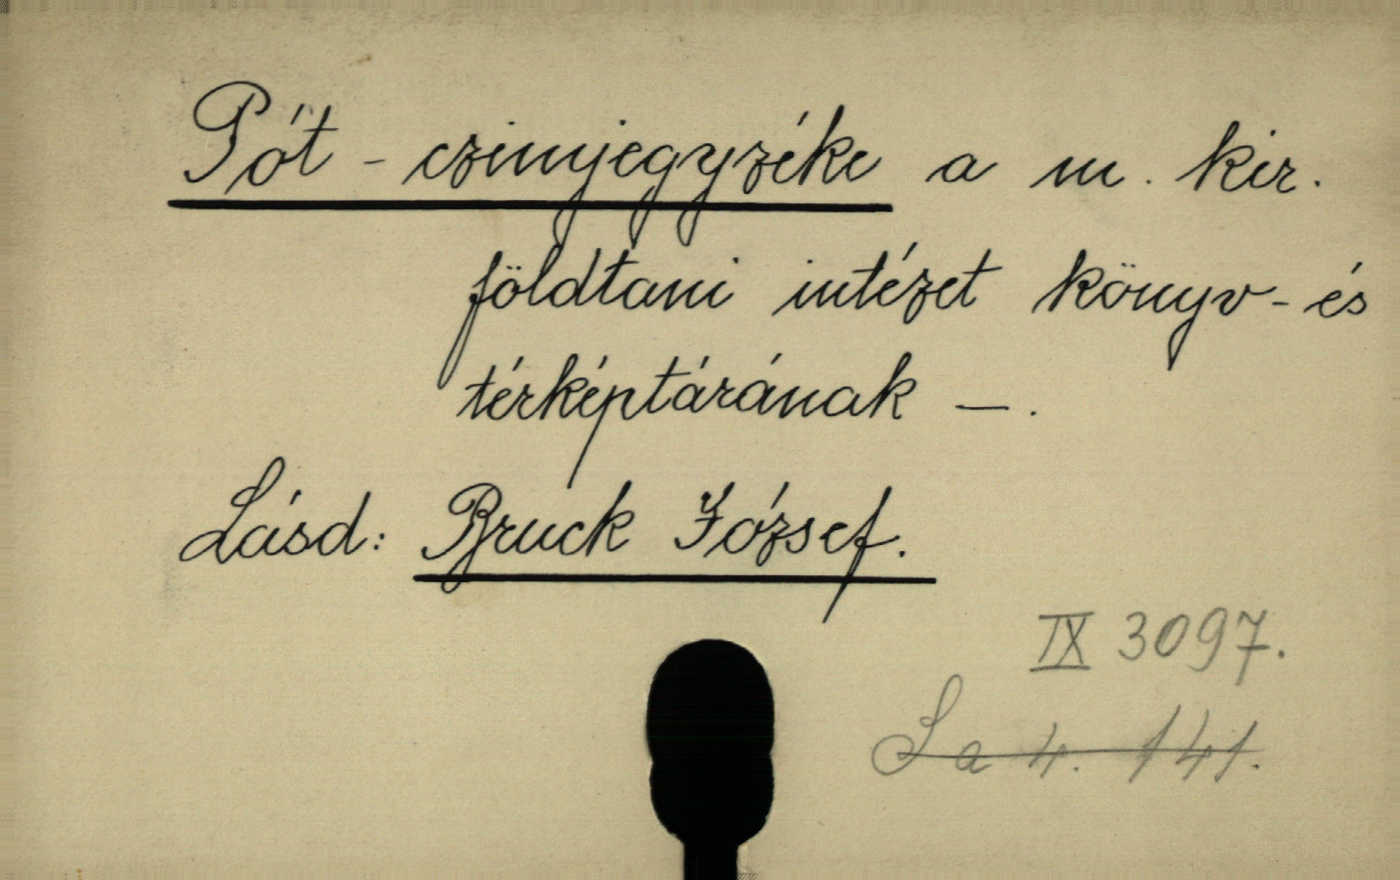 Pót-czimjegyzéke a m. kir.
földtani intézet könyv- és
térképtárának —.
Lásd: Bruck József.
IX 3097.
La 4. 141.